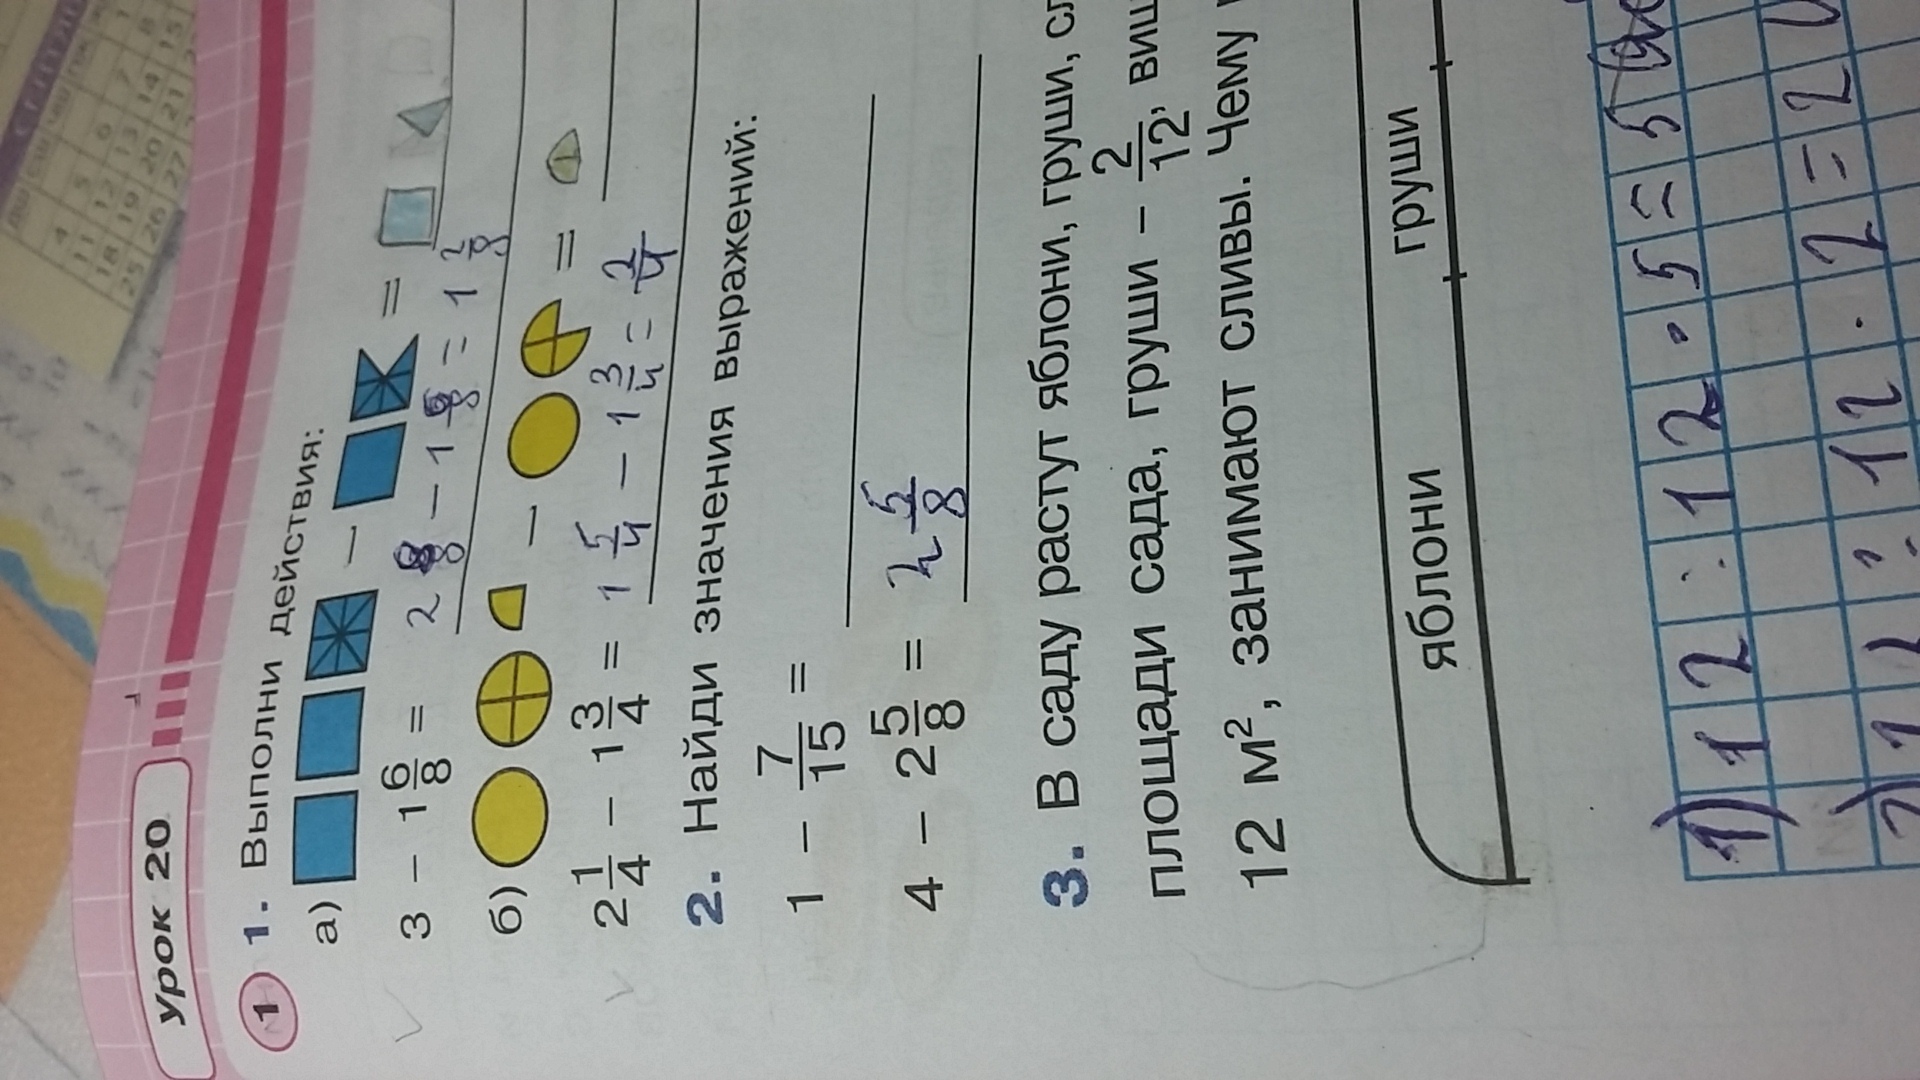 Урок 20
1 1. Выполни действия:
а) − =
3 − 1 6/8 = 2 8/8 − 1 6/8 = 1 2/8
б) − =
2 1/4 − 1 3/4 = 1 5/4 − 1 3/4 = 2/4
2. Найди значения выражений:
1 − 7/15 =
4 − 2 5/8 = 2 5/8
3. В саду растут яблони, груши,
площади сада, груши − 2/12,
12 м², занимают сливы. Чему
яблони груши
1) 12 : 12 · 5 = 5
2) 12 : 12 · 2 = 2
4 5 6 7 8
11 12 13 14 15
18 19 20 21
25 26 27